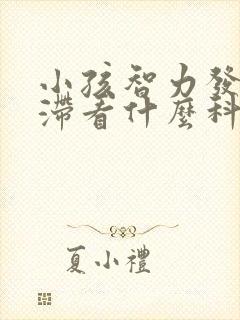 小孩智力發
滯看什麼科
夏小禮